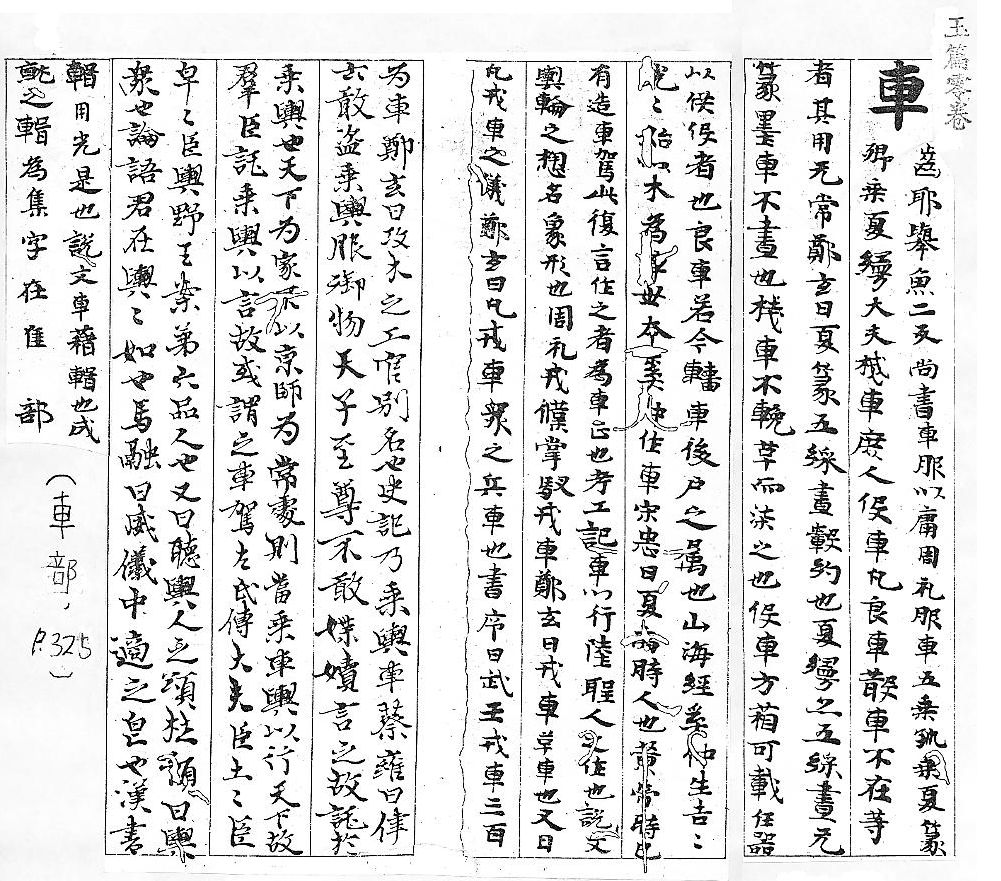 玉篇零卷
車
齒耶舉魚二反尚書車服以庸周礼服車五乘孰乘夏篆
卿乘夏縵大夫棧車庶人伇車凡良車散車不在等
者其用无常鄭玄曰夏篆五綵畫轂約也夏縵二五綵畫无
篆墨車不畫也棧車不鞔草而柒之也伇車方葙可載任器
以供伇者也良車若今轓車後戶之属也山海經奚仲生吉二
光二始以木為車世本奚仲作車宋忠曰夏禹時人也黄帝時已
有造車駕此復言作之者為車正也考工記車以行陸聖人之作也說文
輿輪之揔名象形也周礼戎僕掌馭戎車鄭玄曰戎車草車也又曰
凡戎車之儀鄭玄曰凡戎車眾之兵車也書序曰武王戎車三百
為車鄭玄曰攻木之工官別名也史記乃乘輿車蔡雍曰律
云敢盗乘輿服御物天子至尊不敢媟嬻言之故託於
乘輿也天下為家不以京師為常處則當乘車輿以行天下故
羣臣託乘輿以言故或謂之車駕左氏傳大夫臣士二臣
皁二臣輿野王案苐六品人也又曰聽輿人之頌杜預曰輿
衆也論語君在輿二如也馬融曰威儀中適之皃也漢書
輯用光是也說文車藉輯也或
就之輯為集字在隹部
(車部, P.325)